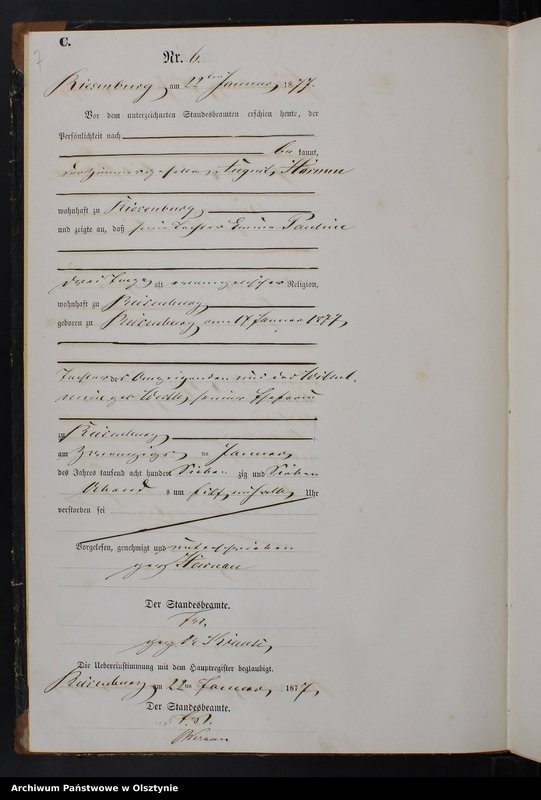 C.
7
Nr. 6.
Riesenburg am 22ten Januar 1877.
Vor dem unterzeichneten Standesbeamten erschien heute, der
Persönlichkeit nach
be kannt,
der Zimmergeselle August
wohnhaft zu Riesenburg
und zeigte an, daß seine Tochter Emma Pauline
drei Tage alt evangelischer Religion,
wohnhaft zu Riesenburg
geboren zu Riesenburg am 17 Januar 1877,
Tochter des Anzeigenden und der Wilhel-
mine geb seiner Ehefrau
zu Riesenburg
am zwanzigs ten Januar
des Jahres tausend acht hundert Sieben zig und Sieben
Abend s um Uhr
verstorben sei
Vorgelesen, genehmigt und unterschrieben
gez
Der Standesbeamte.
gez
Die Uebereinstimmung mit dem Hauptregister beglaubigt.
Riesenburg am 22ten Januar 1877,
Der Standesbeamte.
Archiwum Państwowe w Olsztynie